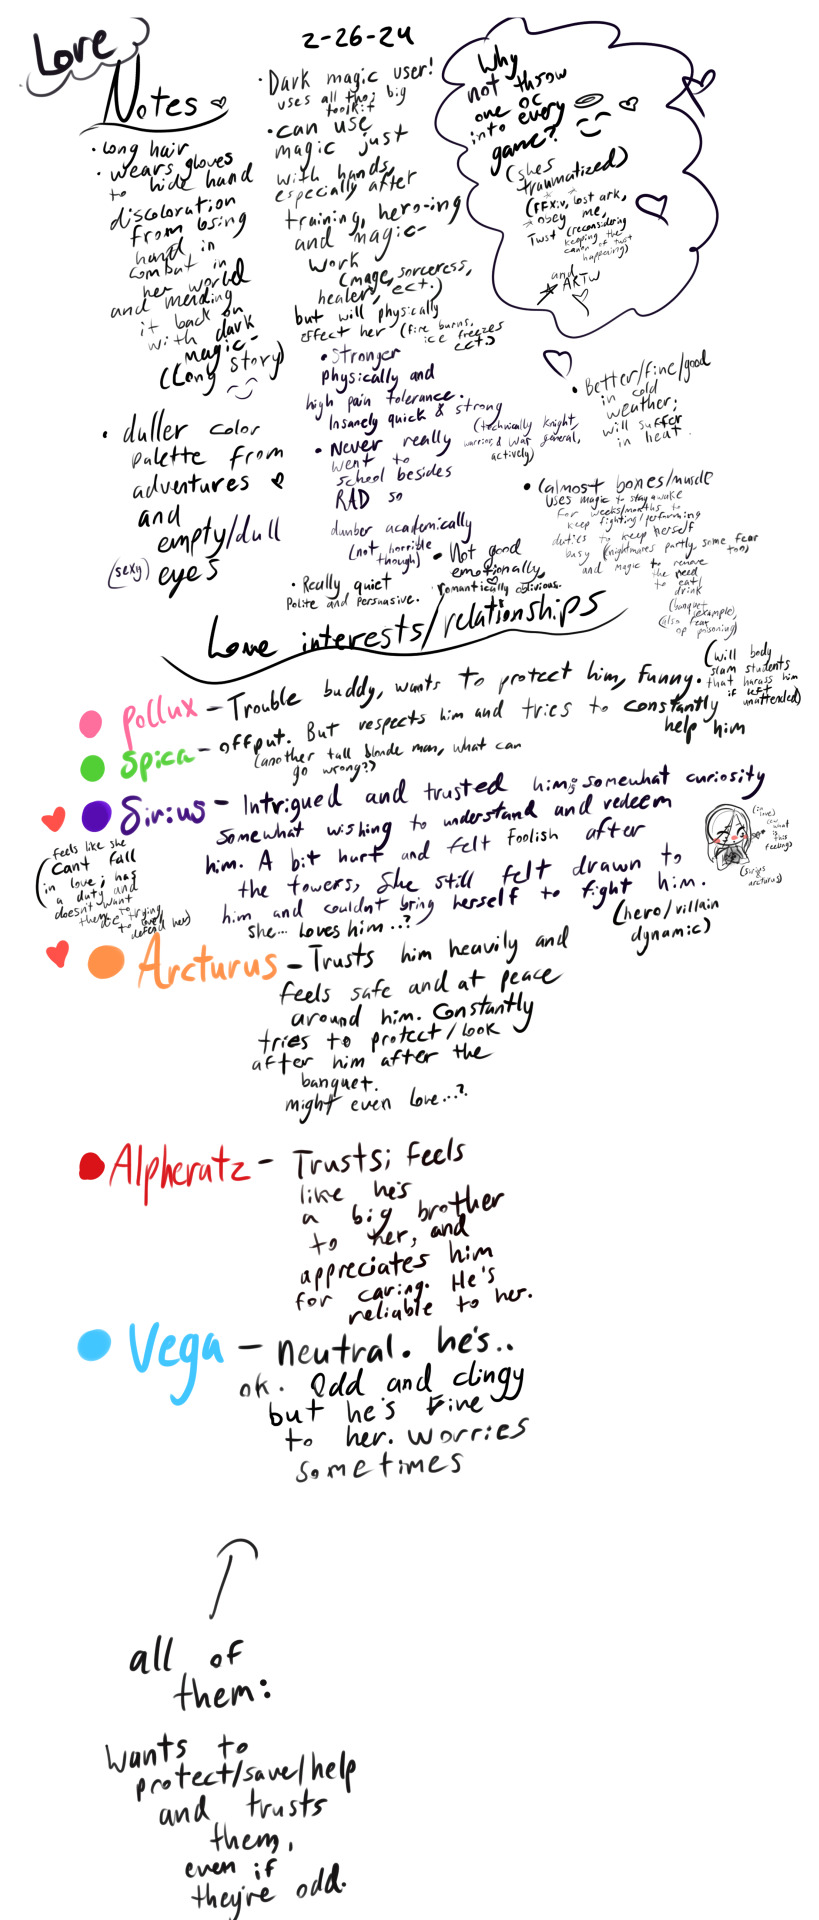 Love
2-26-24
Notes
• long hair
• wears gloves
to hide hand
discoloration
from losing
hand in
combat in
her world
and mending
it back on
with dark
magic-
(Long story)
• duller color
palette from
adventures
and
empty/dull
(sexy) eyes
• Dark magic user!
uses all tho; big
toolkit
• can use
magic just
with hands,
especially after
training, hero-ing
and magic-
work
(mage, sorceress,
healer, ect.)
but will physically
effect her (fire burns,
ice freezes
ect.)
• Stronger
physically and
high pain tolerance.
Insanely quick & strong
(technically knight,
warrior, & war general,
actively)
• Never really
went to
school besides
RAD so
dumber academically
(not horrible
though)
• Not good
emotionally,
romantically oblivious.
• Really quiet
Polite and Persuasive.
Why
not throw
one oc
into every
game?
(shes
traumatized)
(FFXIV, lost ark,
obey me,
Twst (reconsidering
keeping the
canon of twst
happening)
and
ARTW
• Better/fine/good
in cold
weather;
will suffer
in heat.
• (almost bones/muscle
uses magic to stay awake
for weeks/months to
keep fighting/performing
duties to keep herself
busy (nightmares partly, some fear
too)
and magic to remove
the need
to eat/
drink
(banquet
example),
(also fear
of poisoning)
Love interests/relationships
Pollux - Trouble buddy, wants to protect him, funny.
(will body
slam students
that harass him
if left
unattended)
Spica - offput. But respects him and tries to constantly
help him
(another tall blonde man, what can
go wrong?)
Sirius - Intrigued and trusted him; somewhat curiosity
somewhat wishing to understand and redeem
him. A bit hurt and felt foolish after
the towers, She still felt drawn to
him and couldnt bring herself to fight him.
she... loves him..?
(hero/villain
dynamic)
(feels like she
cant fall
in love; has
a duty and
doesn't want
them to
die trying
to love/
defend her)
(in
love)
what
is this
feeling
(sirius
&
arcturus)
Arcturus - Trusts him heavily and
feels safe and at peace
around him. Constantly
tries to protect/look
after him after the
banquet.
might even love...?
Alpheratz - Trusts; feels
like he's
a big brother
to her, and
appreciates him
for caring. He's
reliable to her.
Vega - neutral. he's..
ok. Odd and clingy
but he's fine
to her. worries
sometimes
all of
them:
wants to
protect/save/help
and trusts
them,
even if
they're odd.